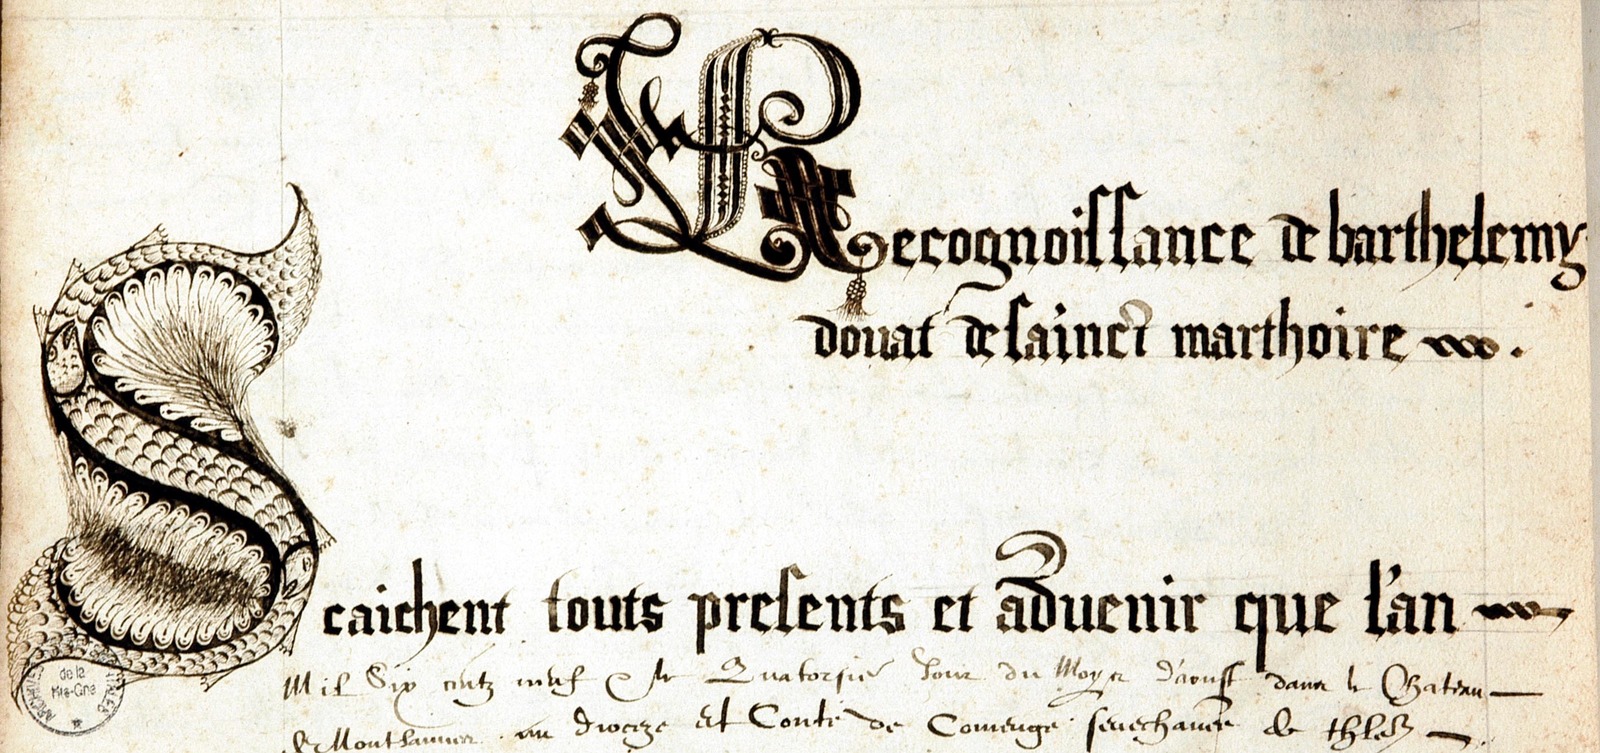 Recognoissance de barthelemy
douat de sainct marthoire
Scaichent touts presents et aduenir que l'an
Mil Six centz neuf & le Quatorsie Jour du Moys d'aoust dans le Chateau
de Montsaunes au dioceze et Conté de Comenge senechaucee de thlez
de la
Hte-Gne